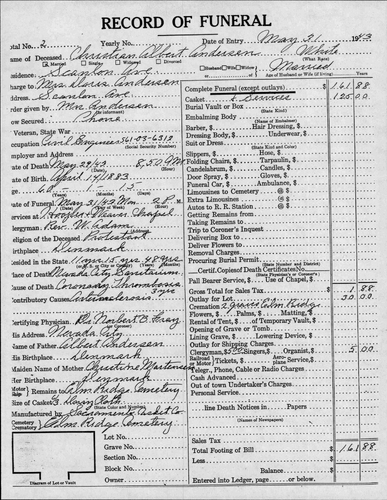 RECORD OF FUNERAL
Total No. 2 Yearly No. Date of Entry May 31, 1943
Name of Deceased Christian Albert Andersen White
Married
Residence Scanlon Ave
Charge to Mrs Doris Andersen
Address Scanlon Ave
Order given by Mrs Andersen
How Secured Phone
Veteran, State War
Occupation Civil Engineer 561-03-6313
(Social Security Number)
Employer and Address
Date of Death May 29, 43 8,50 PM
Date of Birth April 14, 1883
Age 60 - 1 - 15
Date of Funeral May 31/43 Mon. 2
Services at Hooper & Weaver Chapel
Clergyman Rev. W. Adam
Religion of the Deceased Protestant
Birthplace Denmark
Resided in the State 11 mos. 15 yrs 38 yrs
Place of Death Nevada City Sanitarium
Cause of Death Coronary Thrombosis
Contributory Causes Arteriosclerosis
Certifying Physician Dr.
His Address Nevada City
Name of Father Albert Andersen
His Birthplace Denmark
Maiden Name of Mother Christine Mortensen
Her Birthplace Denmark
Remains to Elm Ridge Cemetery
Size of Casket
Manufactured by Sacramento Casket Co
Cemetery
Crematory Elm Ridge Cemetery
Lot No.
Grave No.
Section No.
Block No.
Owner
Diagram of Lot or Vault
Age of Husband or Wife (if living)
Complete Funeral (except outlays) $ 161 88
Casket & Services 125 00
Burial Vault or Box
(State Kind)
Embalming Body
(Name of Embalmer)
Barber, $ Hair Dressing, $
Dressing Body, $ Underwear, $
Suit or Dress
(State Kind)
Slippers, $ Hose, $
Folding Chairs, $ Tarpaulin, $
Candelabrum, $ Candles, $
Door Spray, $ Gloves, $
Funeral Car, $ Ambulance, $
Limousines to Cemetery @ $
Extra Limousines @ $
Autos to R. R. Station @ $
Getting Remains from
Taking Remains to
Trip to Coroner's Inquest
Delivering Box to
Deliver Flowers to
Removal Charges
Procuring Burial Permit
(State Number and District)
Certif. Copies of Death Certificates No.
(State Physician's or Coroner's)
Pall Bearer Service, $ Use of Chapel, $
Gross Total for Sales Tax 1 88
Outlay for Lot 30 00
Cremation 2 graves Elm Ridge
Flowers, $ Palms, $ Matting, $
Rental of Tent, $ of Temporary Vault, $
Opening of Grave or Tomb
Lining Grave, $ Lowering Device, $
Outlay for Shipping Charges
Clergyman, $ Singers, $ Organist, $ 5 00
Tickets, $ Aero Service, $
Telegr., Phone, Cable or Radio Charges
Cash Advanced
Out of town Undertaker's Charges
Personal Service
line Death Notices in Papers
(Names of Newspapers)
Sales Tax
Total Footing of Bill $ 161 88
Less $
Balance $
Entered into Ledger, page or below.